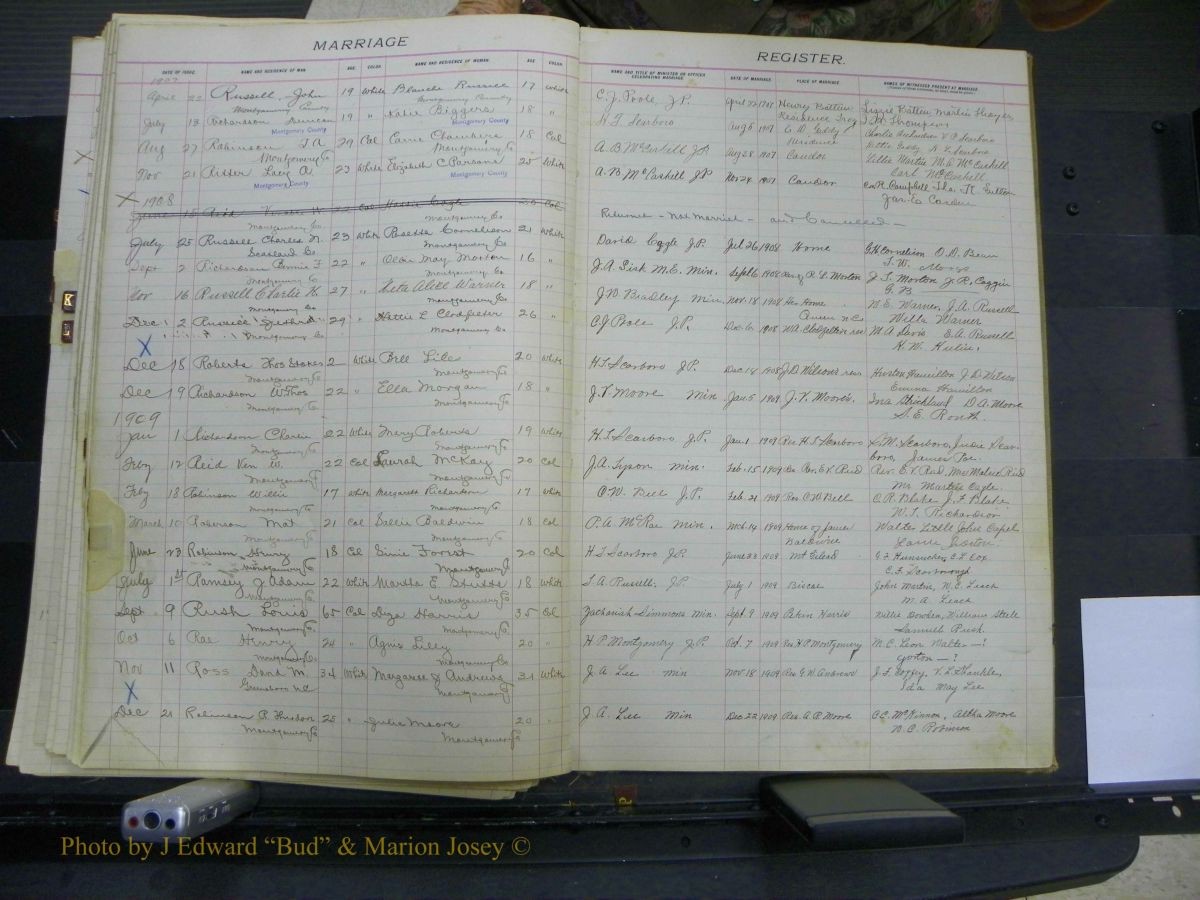 MARRIAGE
DATE OF ISSUE. NAME AND RESIDENCE OF MAN AGE COLOR NAME AND RESIDENCE OF WOMAN AGE COLOR
1907
April 22 Russell, John 19 White Blanche Russell 17 White
Montgomery County Montgomery County
July 13 Richardson Duncan 19 " Katie Biggers 18 "
Montgomery County Montgomery County
Aug 27 Robinson J A 29 Col Carrie Chambers 18 Col
Montgomery Co Montgomery Co
Nov 21 Ritter Lacy A 23 White Elizabeth C Parsons 25 White
Montgomery County Montgomery County
X 1908
June 15 Reid Col Hattie Cagle 20 Col
Montgomery Co Montgomery Co
July 25 Russell Charles N. 23 White Rosetta Cornelison 21 White
Scotland Co Montgomery Co
Sept 2 Richardson F 22 " May Morton 16 "
Montgomery Co Montgomery Co
Nov 16 Russell Charlie H. 27 " Leta Alice Warner 18 "
Montgomery Co
Dec 2 Russell 29 " Hattie L Clodfelter 26 "
Montgomery Co Montgomery Co
X
Dec 18 Roberts Thos Stokes 2 White Bell Lile 20 White
Montgomery Co Montgomery Co
Dec 19 Richardson W Thos 22 " Ella Morgan 18 "
Montgomery Co Montgomery Co
1909
Jan 1 Richardson Charlie 22 White Mary Roberts 19 White
Montgomery Co Montgomery Co
Feby 12 Reid Ven W. 22 Col Laurah McKay 20 Col
Montgomery Co Montgomery Co
Feby 18 Robinson Willie 17 White Margarett Richardson 17 White
Montgomery Co Montgomery Co
March 10 Roberson Mat 21 Col Sallie Baldwin 18 Col
Montgomery Co Montgomery Co
June 23 Robinson Henry 18 Col Sinie Forist 20 Col
Montgomery Co Montgomery Co
July 1st Ramsey J Adam 22 White Martha E. Stutts 18 White
Montgomery Co Montgomery Co
Sept 9 Rush Louis 65 Col Liza Harris 35 Col
Montgomery Co Montgomery Co
Oct 6 Rae Henry 24 " Agnes Lilly 20 "
Montgomery Co Montgomery Co
Nov 11 Ross David M. 34 White Margaret J Andrews 31 White
Greensboro NC Montgomery Co
X
Dec 21 Robinson P. Hudson 25 " Julia Moore 20 "
Montgomery Co Montgomery Co
REGISTER.
NAME AND TITLE OF MINISTER OR OFFICER CELEBRATING MARRIAGE DATE OF MARRIAGE PLACE OF MARRIAGE NAMES OF WITNESSES PRESENT AT MARRIAGE
C. J. Poole, J.P. April 22 1907 Henry Batten Lizzie Batten Martin Thayer
Residence Troy J M Thompson
H. T. Scarboro Aug 5 1907 C. D. Eddy Charlie V P Scarboro
Residence Hattie Eddy H. T. Scarboro
A. B McCaskill J.P. Aug 28 1907 Candor Lillie Martin M. E McCaskill
Carl McCaskill
A. B. McCaskill J P Nov 24 1907 Candor Campbell Tho. R. Sutton
Returned - Not Married - and Cancelled -
David Cagle J.P. Jul 26 1908 Home G. H. Cornelison O. D. Bean
J. W.
J. A. Sisk M.E. Min. Sept 6 1908 Res of R. L Morton J. T. Morton J. R. Coggin
G. B
J. W. Bradley Min. Nov. 18 1908 Her Home N. E. Warner, J. A. Russell
Willa Warner
C J Poole J. P. Dec 6 1908 W A. Clodfelter res M A Davis E. A. Russell
H. W.
H. T. Scarboro J.P. Dec 18 1908 J. D Wilson's res Hurton Hamilton J. D. Wilson
Emma Hamilton
J. V. Moore min Jan 5 1909 J. V. Moore's. Ina Strickland D. A. Moore
S. E. Routh
H. T. Scarboro J.P. Jan 1 1909 Res H. T Scarboro L. M. Scarboro, Susie Scar-
boro, James Poe.
J. A. Tyson min. Feb. 15 1909 Res Rev. E. V. Reid Rev. E. V. Reid, Mrs Malsie Reid
Mr Martin Cagle.
C. W. Bell J. P. Feb. 21 1909 Res C W Bell O. R. Blake J. F Blake
W. T. Richardson
P. A McRae Min. Mch. 14 1909 Home of James Walter Little John Capel
Baldwin
H. T Scarboro J.P. June 23 1909 Mt Gilead G. F. Hunsucker, E. L Cox
C. F. Scarborough
S. A. Russell. J P July 1 1909 Biscoe John Martin, W. C. Leach
M. A. Leach
Zachariah Simmons Min. Sept. 9 1909 Peter Harris Willis Bowden, William Steele
Samuel Rush.
H. P. Montgomery J. P. Oct. 7 1909 Res H. P. Montgomery M. C. Leon Walter - !
Gordon - !
J. A Lee min Nov 18 1909 Res G. W. Andrews J. F. V. L. Shankles,
Ida May Lee
J. A. Lee min Dec 22 1909 Res. A. P. Moore C C. McKinnon, Altha Moore
N. C. Robinson
K
L
P
Photo by J Edward “Bud” & Marion Josey ©